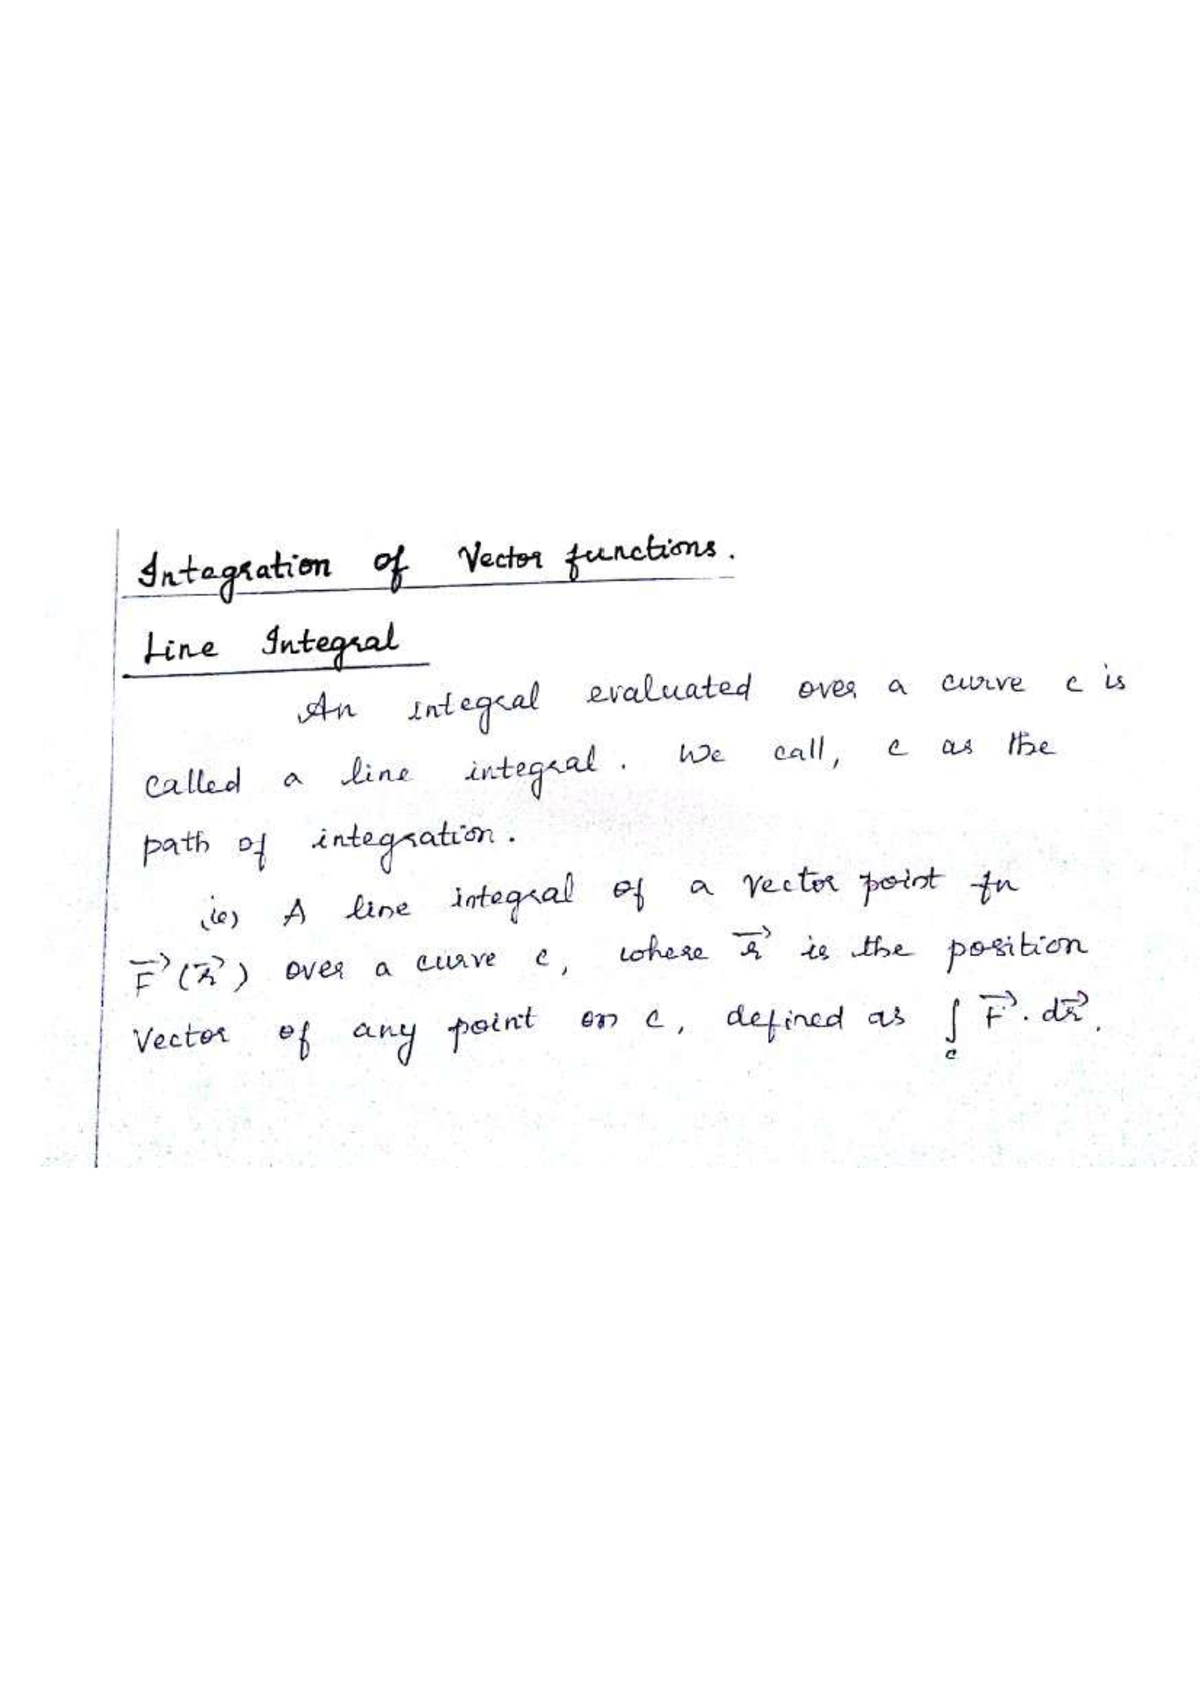 Integration of Vector functions.
Line Integral
An integral evaluated over a curve c is
called a line integral. We call, c as the
path of integration.
(ie) A line integral of a vector point fn
F⃗(r⃗) over a curve c, where r⃗ is the position
Vector of any point on c, defined as ∫_c F⃗. dr⃗.